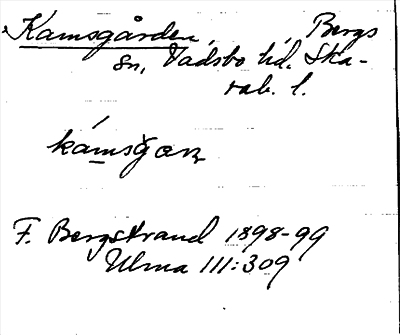 Kamsgården, Bergs
sn, Vadsbo hd. Ska-
rab. l.
kámsg̊ɑn
F. Bergstrand 1898-99
Ulma 111:309